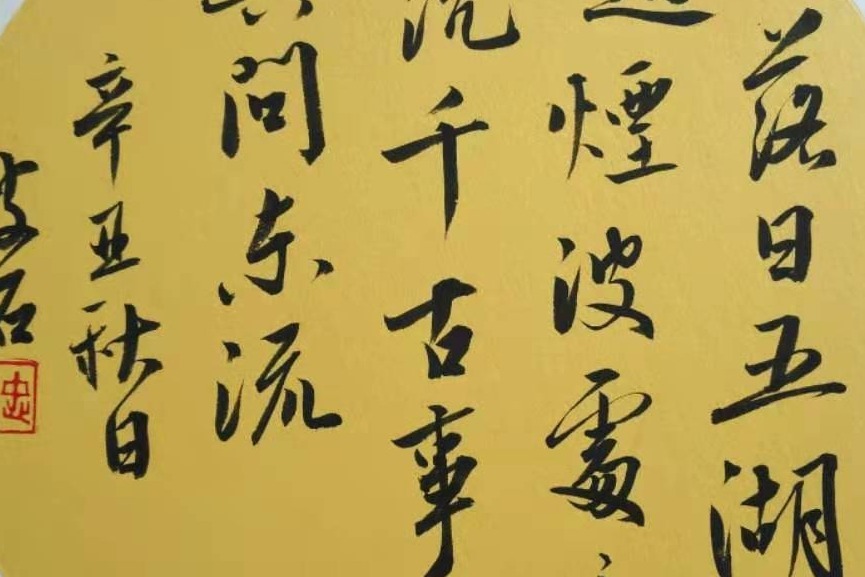 落日五湖
煙波處
沉千古事
問东流
辛丑秋日
石